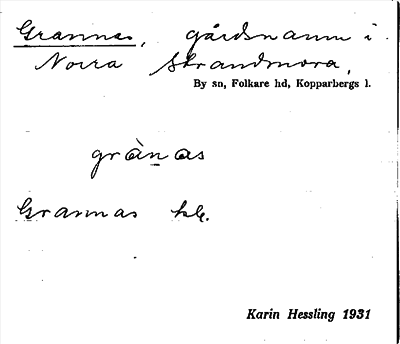 Grannas, gårdsnamn i
Norra Strandmora,
By sn, Folkare hd, Kopparbergs l.
grànas
Grannas hb.
Karin Hessling 1931